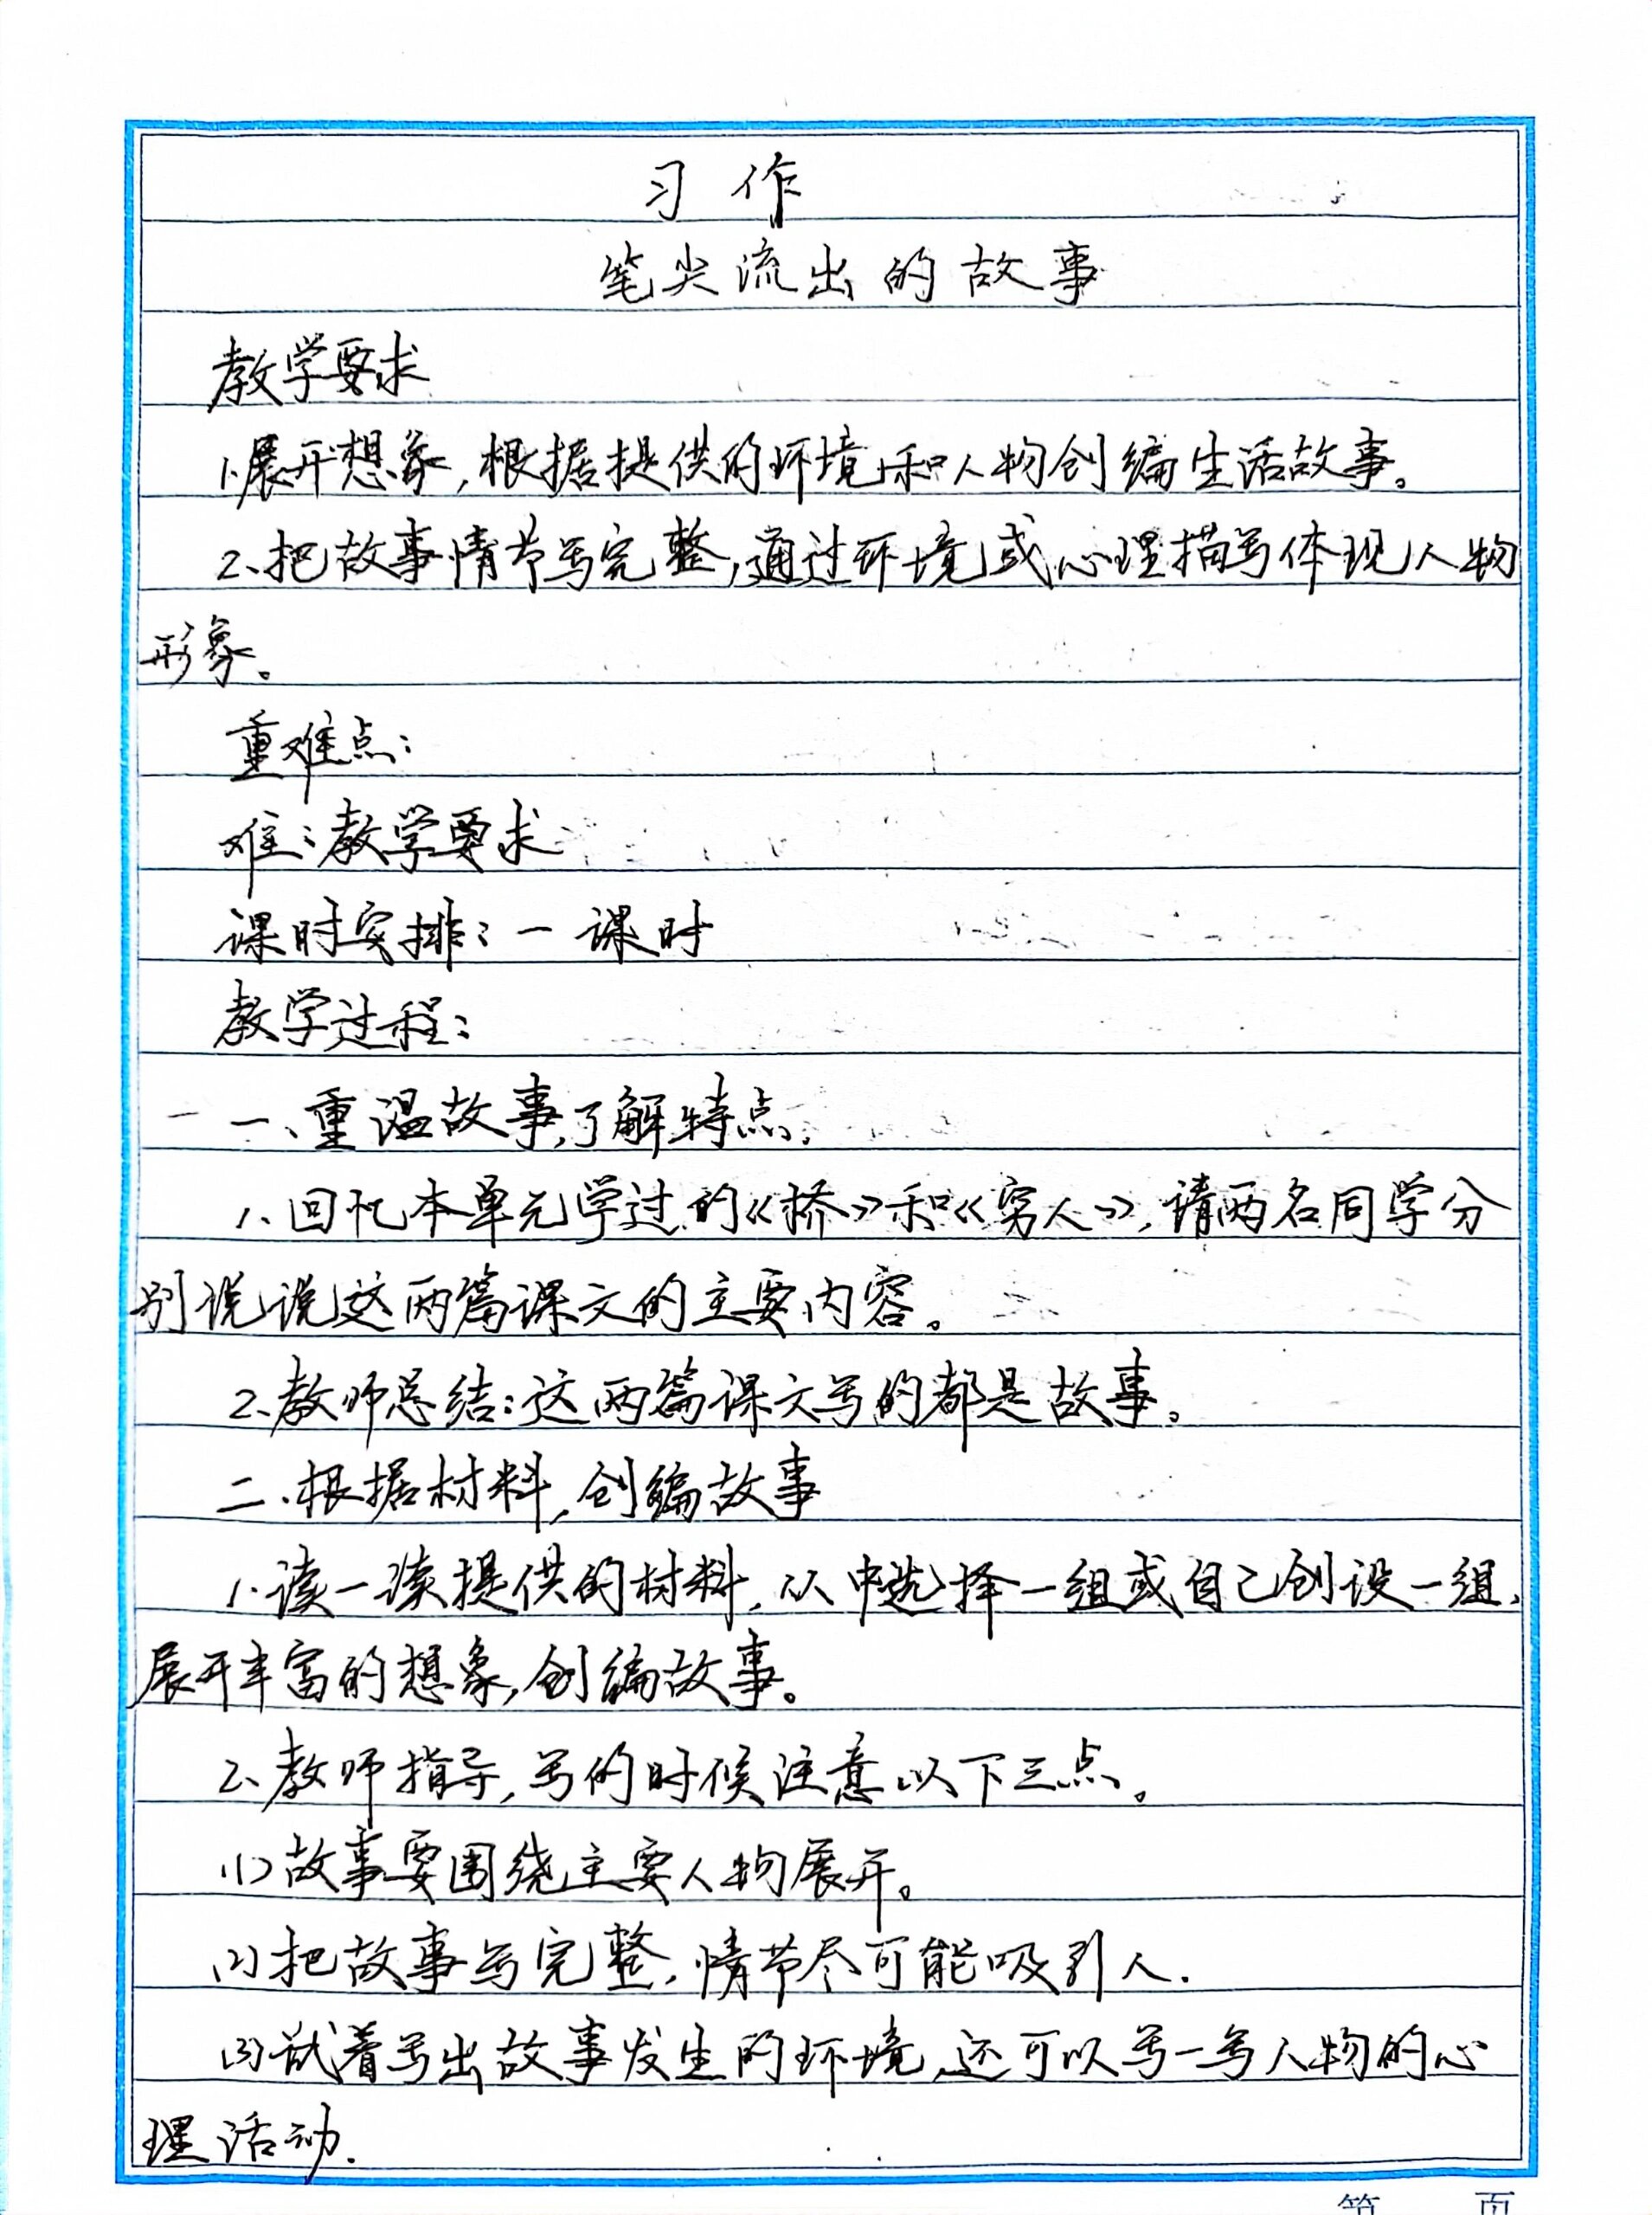 习作
笔尖流出的故事
教学要求
1.展开想象,根据提供的环境和人物创编生活故事。
2、把故事情节写完整,通过环境或心理描写体现人物
形象。
重难点:
难:教学要求
课时安排:一课时
教学过程:
一、重温故事,了解特点,
1、回忆本单元学过的《桥》和《穷人》,请两名同学分
别说说这两篇课文的主要内容。
2、教师总结:这两篇课文写的都是故事。
二、根据材料,创编故事
1.读一读提供的材料,从中选择一组或自己创设一组,
展开丰富的想象,创编故事。
2、教师指导,写的时候注意以下三点。
(1)故事要围绕主要人物展开。
(2)把故事写完整,情节尽可能吸引人.
(3)试着写出故事发生的环境,还可以写一写人物的心
理活动.
第 页